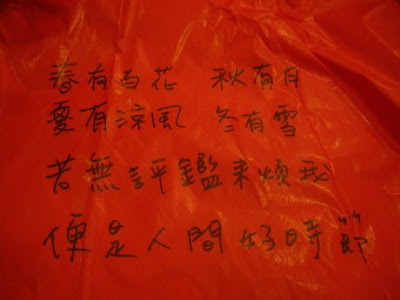 春有百花 秋有月
夏有涼風 冬有雪
若無評鑑來煩我
便是人間好時節